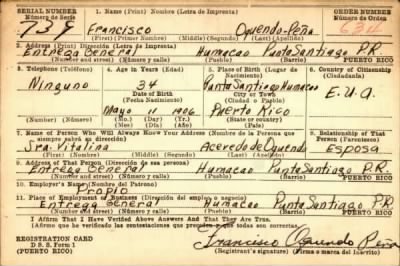 SERIAL NUMBER 1. Name (Print) Nombre (Letra de Imprenta) ORDER NUMBER
Número de Serie Número de Orden
739 Francisco Oquendo-Peña 634
(First) (Primer Nombre) (Middle) (Segundo) (Last) (Apellido)
2. Address (Print) Dirección (Letra de Imprenta)
Entrega General Humacao Punta Santiago P.R.
Number and street (Número y calle) (Town) (Pueblo) (Barrio) PUERTO RICO
3. Telephone (Teléfono) 4. Age in Years (Edad) 5. Place of Birth (Lugar de Nacimiento) 6. Country of Citizenship (Ciudadanía)
Ninguno 34 Punta Santiago Humacao E.U.A.
Date of Birth (Fecha Nacimiento) City or Town (Ciudad o Pueblo)
Mayo 11 1906 Puerto Rico
(Mo.) (Day) (Yr.) State or country
(Mes) (Día) (Año) (Estado o país)
7. Name of Person Who Will Always Know Your Address (Nombre de la Persona que siempre sabrá su dirección) 8. Relationship of That Person (Parentesco)
Sra. Vitalina Acevedo de Oquendo Esposa
(First) (Primer Nombre) (Middle) (Segundo) (Last) (Apellido)
9. Address of That Person (Dirección de esa persona)
Entrega General Humacao Punta Santiago P.R.
Number and street (Número y calle) (Town) (Pueblo) (Barrio) PUERTO RICO
10. Employer's Name (Nombre del Patrono)
Propio
11. Place of Employment or Business (Dirección del empleo o negocio)
Entrega General Humacao Punta Santiago P.R.
Number and street (Número y calle) (Town) (Pueblo) (Barrio) PUERTO RICO
I Affirm That I Have Verified Above Answers And That They Are True.
(Afirmo que he verificado las contestaciones que aparecen arriba y que son ciertas.)
REGISTRATION CARD
D. S. S. Form 1
(PUERTO RICO)
Francisco Oquendo Peña
(Registrant's signature) (Firma o marca del Inscrito)